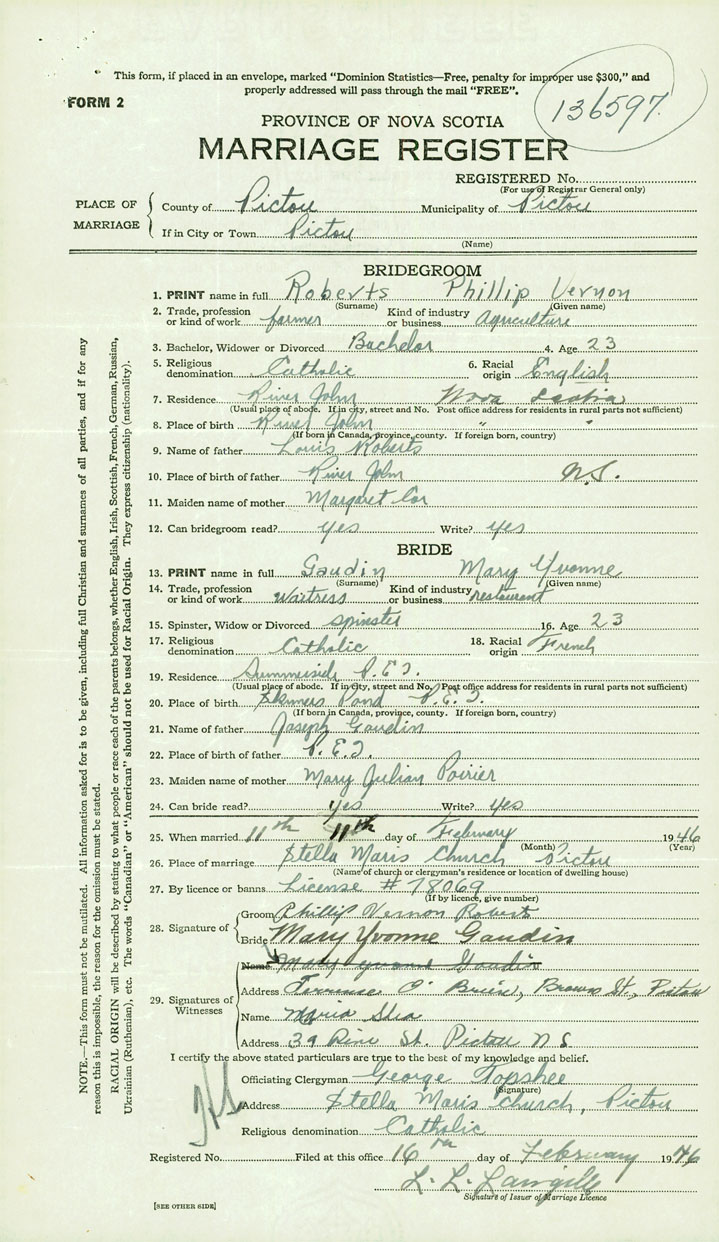 This form, if placed in an envelope, marked “Dominion Statistics—Free, penalty for improper use $300,” and
properly addressed will pass through the mail “FREE”.
FORM 2
136597.
PROVINCE OF NOVA SCOTIA
MARRIAGE REGISTER
REGISTERED No.
(For use of Registrar General only)
PLACE OF MARRIAGE
County of Pictou Municipality of Pictou
If in City or Town Pictou
(Name)
BRIDEGROOM
1. PRINT name in full Roberts Phillip Vernon
(Surname) (Given name)
2. Trade, profession or kind of work farmer Kind of industry or business Agriculture
3. Bachelor, Widower or Divorced Bachelor 4. Age 23
5. Religious denomination Catholic 6. Racial origin English
7. Residence River John Nova Scotia
(Usual place of abode. If in city, street and No. Post office address for residents in rural parts not sufficient)
8. Place of birth River John " "
(If born in Canada, province, county. If foreign born, country)
9. Name of father Louis Roberts
10. Place of birth of father River John N.S.
11. Maiden name of mother Margaret
12. Can bridegroom read? yes Write? yes
BRIDE
13. PRINT name in full Gaudin Mary Yvonne
(Surname) (Given name)
14. Trade, profession or kind of work Waitress Kind of industry or business restaurant
15. Spinster, Widow or Divorced spinster 16. Age 23
17. Religious denomination Catholic 18. Racial origin French
19. Residence Summerside P.E.I.
(Usual place of abode. If in city, street and No. Post office address for residents in rural parts not sufficient)
20. Place of birth Skinners Pond P.E.I.
(If born in Canada, province, county. If foreign born, country)
21. Name of father Joseph Gaudin
22. Place of birth of father P.E.I.
23. Maiden name of mother Mary Julian Poirier
24. Can bride read? yes Write? yes
25. When married 11th 11th day of February 1946
(Month) (Year)
26. Place of marriage Stella Maris Church Pictou
(Name of church or clergyman's residence or location of dwelling house)
27. By licence or banns License # 78069
(If by licence, give number)
28. Signature of
Groom Phillip Vernon Roberts
Bride Mary Yvonne Gaudin
29. Signatures of Witnesses
Name Mary Yvonne Gaudin
Address Terrence O'Brien, Browns St., Pictou
Name Maria Shea
Address 39 St. Pictou N S
I certify the above stated particulars are true to the best of my knowledge and belief.
Officiating Clergyman George Topshee
(Signature)
Address Stella Maris Church, Pictou
Religious denomination Catholic
Registered No. Filed at this office 16th day of February 1946
L. L. Langille
Signature of Issuer of Marriage Licence
[SEE OTHER SIDE]
NOTE.—This form must not be mutilated. All information asked for is to be given, including full Christian and surnames of all parties, and if for any
reason this is impossible, the reason for the omission must be stated.
RACIAL ORIGIN will be described by stating to what people or race each of the parents belongs, whether English, Irish, Scottish, French, German, Russian,
Ukrainian (Ruthenian), etc. The words “Canadian” or “American” should not be used for Racial Origin. They express citizenship (nationality).